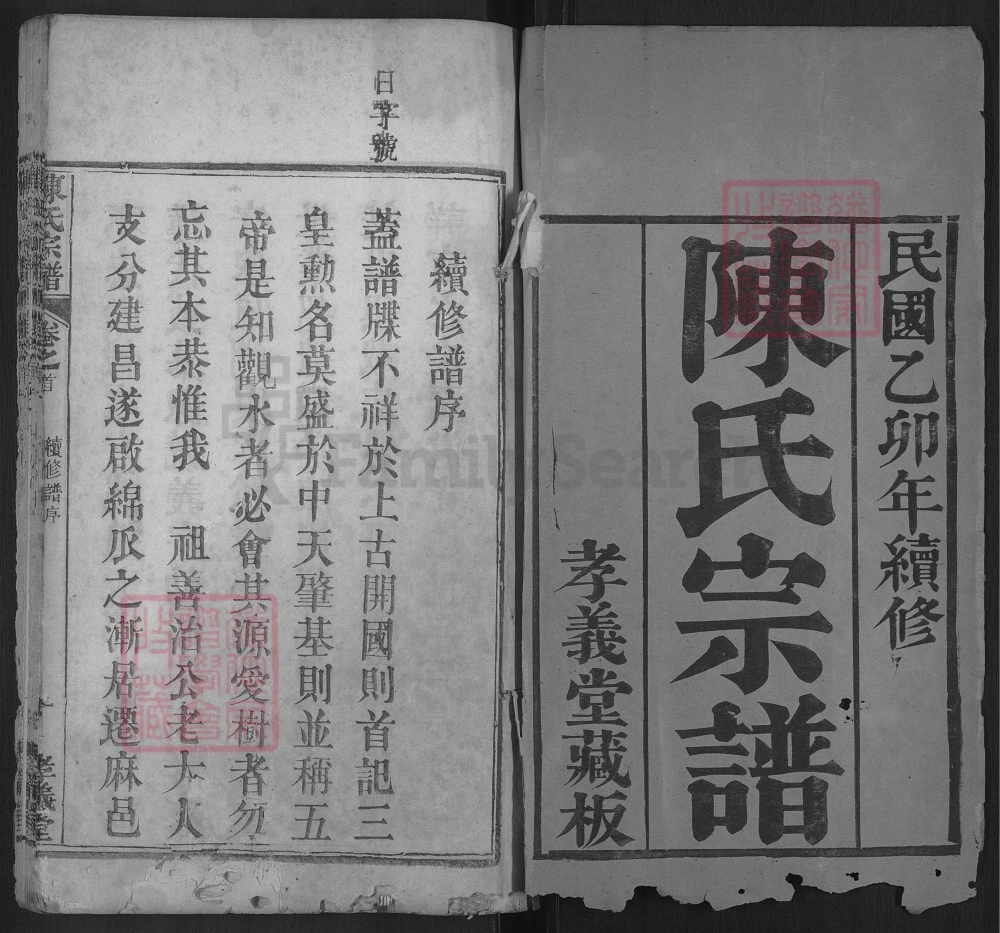 民國乙卯年續修
陳氏宗譜
孝義堂藏板
日字號
續修譜序
蓋譜牒不祥於上古開國則首記三
皇勳名莫盛於中天肇基則並稱五
帝是知觀水者必會其源愛樹者勿
忘其本恭惟我 祖善治公老大人
支分建昌遂啟綿𠂢之漸居遷麻邑
陳氏宗譜
卷之首
續修譜序
孝義堂
FamilySearch